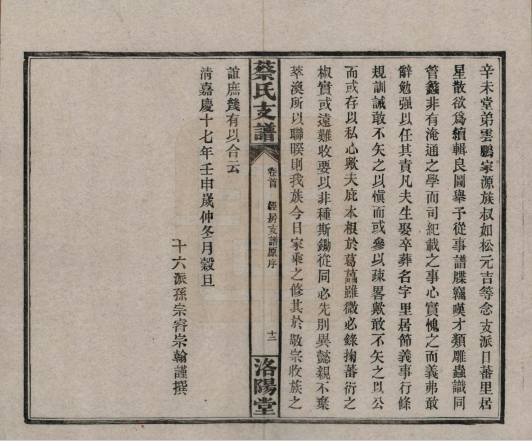 辛未堂弟雲鵬家源族叔如松元吉等念支派日蕃里居
星散欲爲續輯良圖舉予從事譜牒竊嘆才類雕蟲識同
管蠡非有淹通之學而司紀載之事心實愧之而義弗敢
辭勉强以任其責凡夫生娶卒葬名字里居節義事行條
規訓誡敢不矢之以愼而或參以疎畧歟敢不矢之以公
而或存以私心歟夫庇本根於葛藟雖微必錄掬蕃衍之
椒實或遠難收要以非種斯鋤從同必先別異懿親不棄
萃渙所以聯睽則我族今日家乘之修其於敬宗收族之
蔡氏支譜
卷首
經房支譜原序
十三
洛陽堂
誼庶幾有以合云
清嘉慶十七年壬申歲仲冬月穀旦
十六派孫宗睿宗翰謹撰